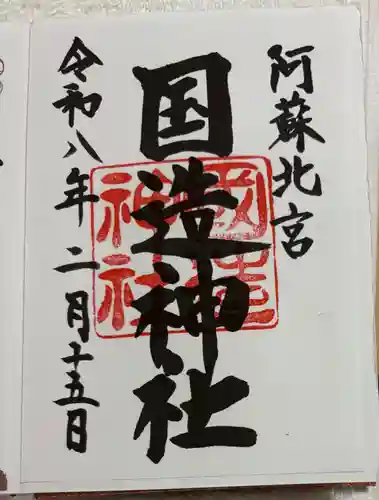 阿蘇北宮
国造神社
国造
神社
令和八年二月十五日